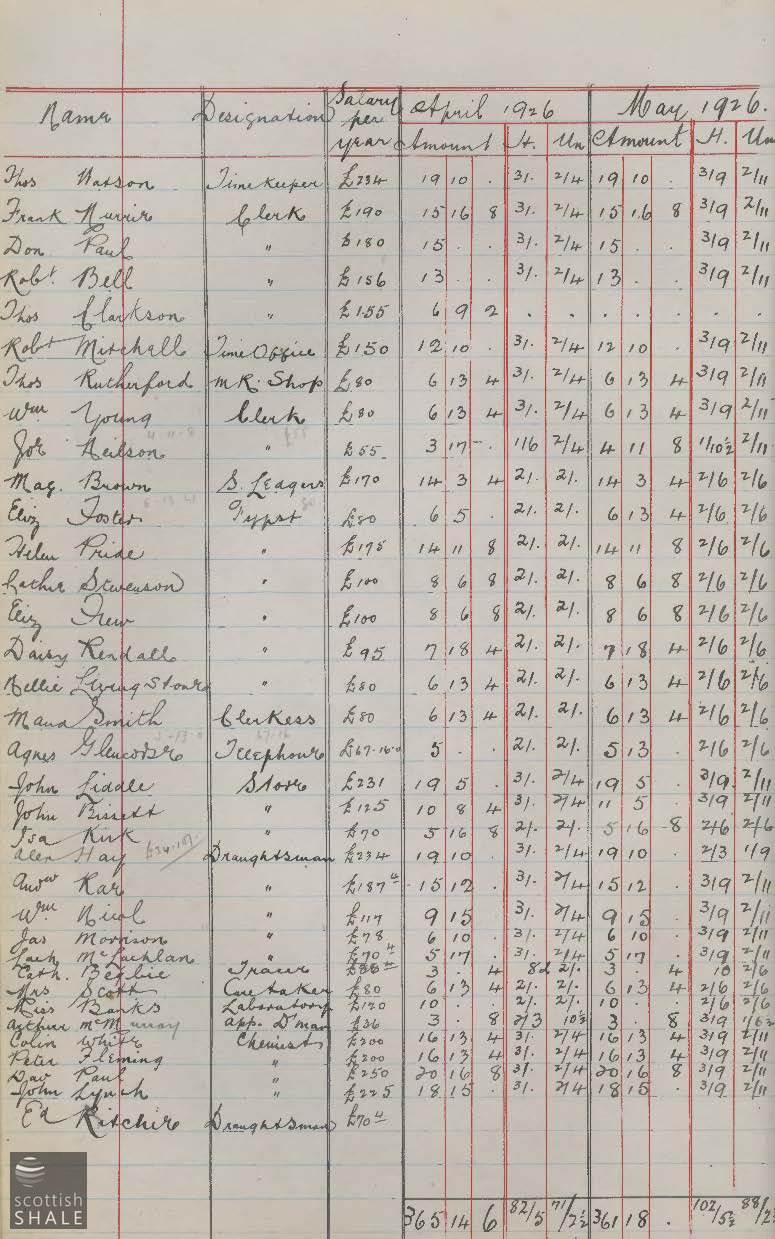 Name Designation Salary per year April 1926 May 1926.
Amount H. Un Amount H. Un
Thos Watson Timekeeper £234 19 10 . 3/. 2/4 19 10 . 3/9 2/11
Frank Currie Clerk £190 15 16 8 3/. 2/4 15 16 8 3/9 2/11
Don Paul " £180 15 . . 3/. 2/4 15 . . 3/9 2/11
Robt Bell " £156 13 . . 3/. 2/4 13 . . 3/9 2/11
Thos Clarkson " £155 6 9 2 . . . . . . .
Robt Mitchell Time Office £150 12 10 . 3/. 2/4 12 10 . 3/9 2/11
Thos Rutherford MR. Shop £80 6 13 4 3/. 2/4 6 13 4 3/9 2/11
Wm Young Clerk £80 6 13 4 3/. 2/4 6 13 4 3/9 2/11
Neilson " £55 3 17 - 1/6 2/4 4 11 8 1/10½ 2/11
Mag. Brown S. Leagers £170 14 3 4 2/. 2/. 14 3 4 2/6 2/6
Eliz Foster Typst £80 6 5 . 2/. 2/. 6 13 4 2/6 2/6
Helen Pride " £175 14 11 8 2/. 2/. 14 11 8 2/6 2/6
Cathie Stevenson " £100 8 6 8 2/. 2/. 8 6 8 2/6 2/6
Eliz Trew " £100 8 6 8 2/. 2/. 8 6 8 2/6 2/6
Daisy Kendall " £95 7 18 4 2/. 2/. 7 18 4 2/6 2/6
Nellie Livingstone " £80 6 13 4 2/. 2/. 6 13 4 2/6 2/6
Maud Smith Clerkess £80 6 13 4 2/. 2/. 6 13 4 2/6 2/6
Agnes Glencorse Telephone £67.16.0 5 . . 2/. 2/. 5 13 . 2/6 2/6
John Liddle Store £231 19 5 . 3/. 2/4 19 5 . 3/9 2/11
John Bissett " £125 10 8 4 3/. 2/4 11 5 . 3/9 2/11
Isa Kirk " £70 5 16 8 2/. 2/. 5 16 8 2/6 2/6
Alex Hay Draughtsman £234 19 10 . 3/. 2/4 19 10 . 2/3 1/9
Andw Rae " £187 4 15 12 . 3/. 2/4 15 12 . 3/9 2/11
Wm Nicol " £117 9 15 3/. 2/4 9 15 . 3/9 2/11
Jas Morrison " £78 6 10 3/. 2/4 6 10 . 3/9 2/11
Lach McLachlan " £70 4 5 17 3/. 2/4 5 17 . 3/9 2/11
Cath. Tracer 3 . 4 8d 2/. 3 . 4 10 2/6
Mrs Scott Caretaker £80 6 13 4 2/. 2/. 6 13 4 2/6 2/6
Miss Banks Laboratory £120 10 . . 2/. 2/. 10 . . 2/6 2/6
Arthur McMurray app. D'man £36 3 . 8 2/3 10½ 3 . 8 3/9
Colin White Chemist £200 16 13 4 3/. 2/4 16 13 4 3/9 2/11
Peter Fleming " £200 16 13 4 3/. 2/4 16 13 4 3/9 2/11
Dav Paul " £250 20 16 8 3/. 2/4 20 16 8 3/9 2/11
John Lynch " £225 18 15 . 3/. 2/4 18 15 . 3/9 2/11
Ed Ritchie Draughtsman £70 4
365 14 6 82/5 71/7½ 361 18 . 102/5½ 88/2½
scottish
SHALE